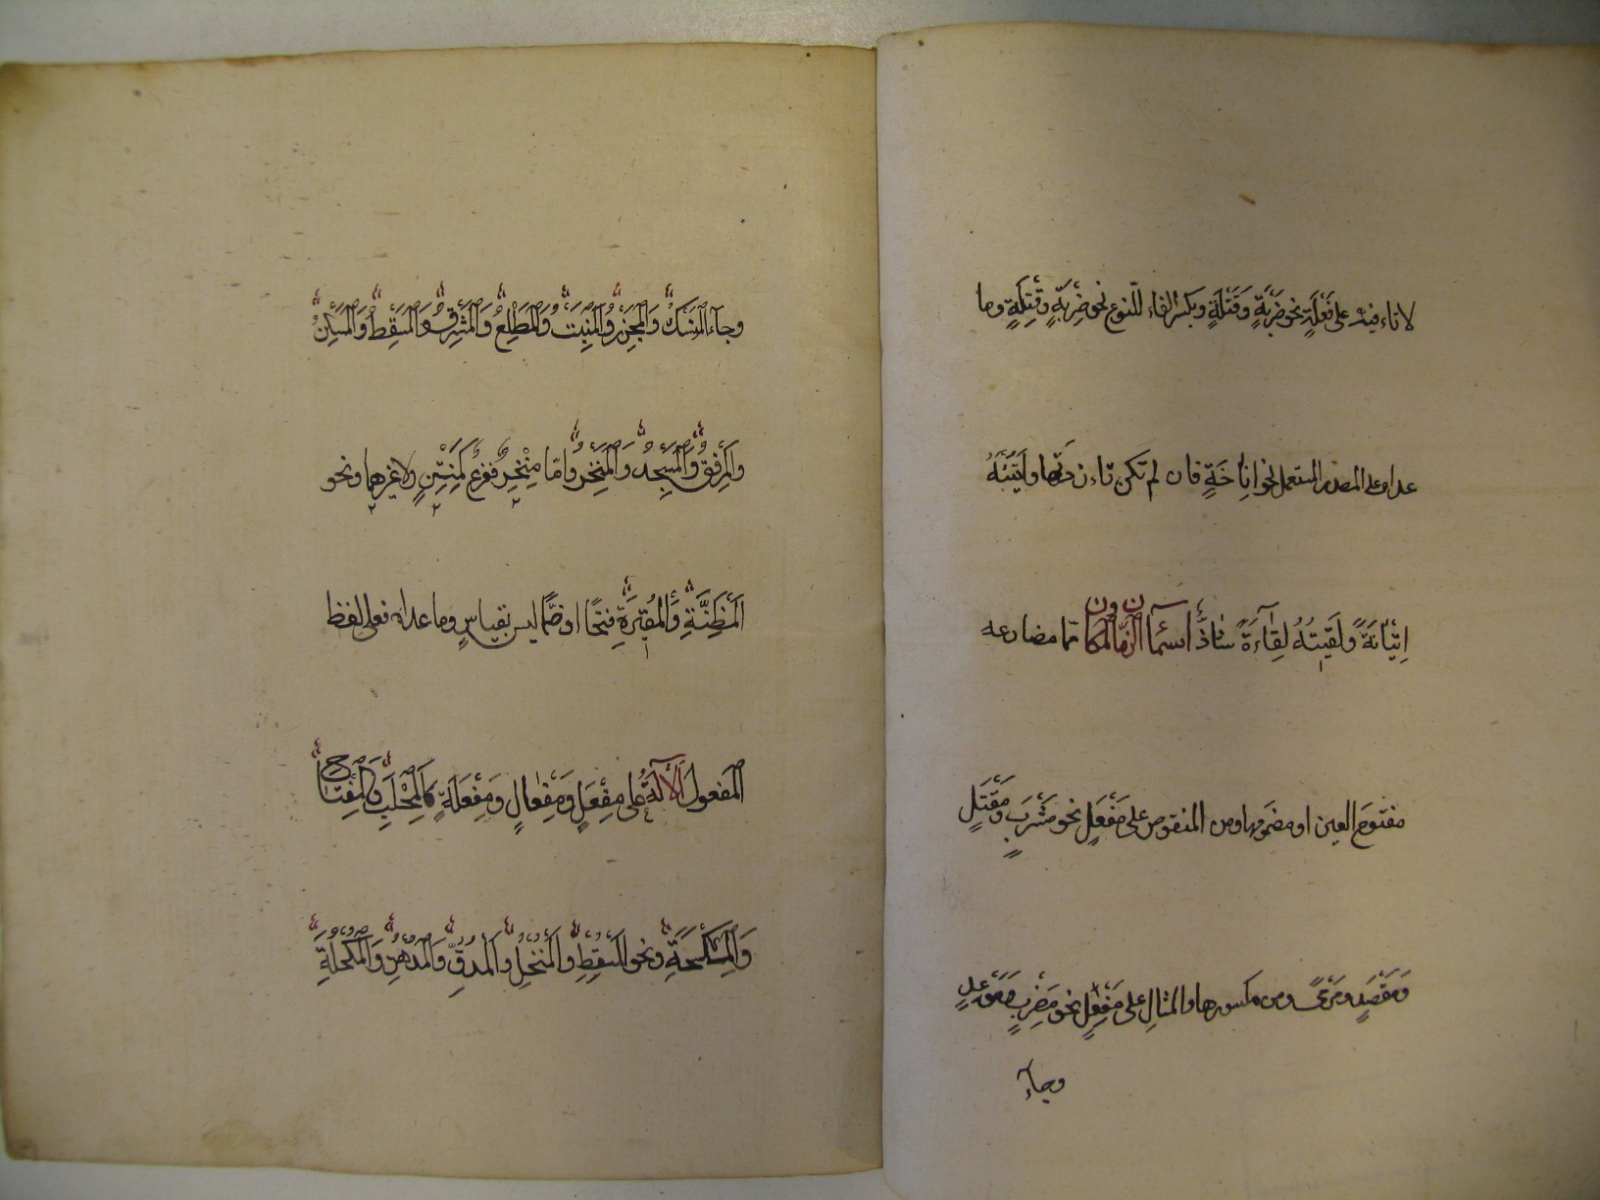 لا تاء فيه على فَعْلَةٍ نحو ضَرْبَةٍ وَقَتْلَةٍ وبكسر الفاء للنّوع نحو ضِرْبَةٍ وَقِتْلَةٍ وما
عداه على المصدر المستعمل نحو اناخَةٍ فان لم تكن تاء زدتها واَتَيْتُهُ
اِتْيَانَةً ولَقِيتُهُ لِقَآءَةً شاذٌّ اسمآ الزّمان والمكان ممّا مضارعه
مفتوح العين او مضمومها ومن المنقوص على مَفْعَلٍ نحو مَشْرَبٍ ومَقْتَلٍ
وَمَرْمًى ومن مكسورها والمثالِ على مَفْعِلٍ نحو مَضْرِبٍ ومَوْعِدٍ
وجآء
وجآء المَنْسِكُ وَالمَجْزِرُ وَالمَنْبِتُ وَالمَطْلِعُ وَالمَشْرِقُ وَالمَسْقِطُ وَالمَسْكِنُ
والمَرْفِقُ وَالمَسْجِدُ وَالمَنْخِرُ وامّا مِنْخِرٌ ففرعٌ كَمِنْتِنٍ ولا غيرهما ونحو
المَظِنَّةِ وَالمَقْبُرَةِ فتحًا او ضمًّا ليس بقياسٍ وما عداه فعلى لفظ
المفعول اَلْآلَةُ على مِفْعَلٍ ومِفْعَالٍ ومِفْعَلَةٍ كَالمِحْلَبِ وَالمِفْتَاحِ
وَالمِكْسَحَةِ ونحو المُسْعُطِ وَالمُنْخُلِ وَالمُدُقِّ وَالمُدْهُنِ وَالمُكْحُلَةِ